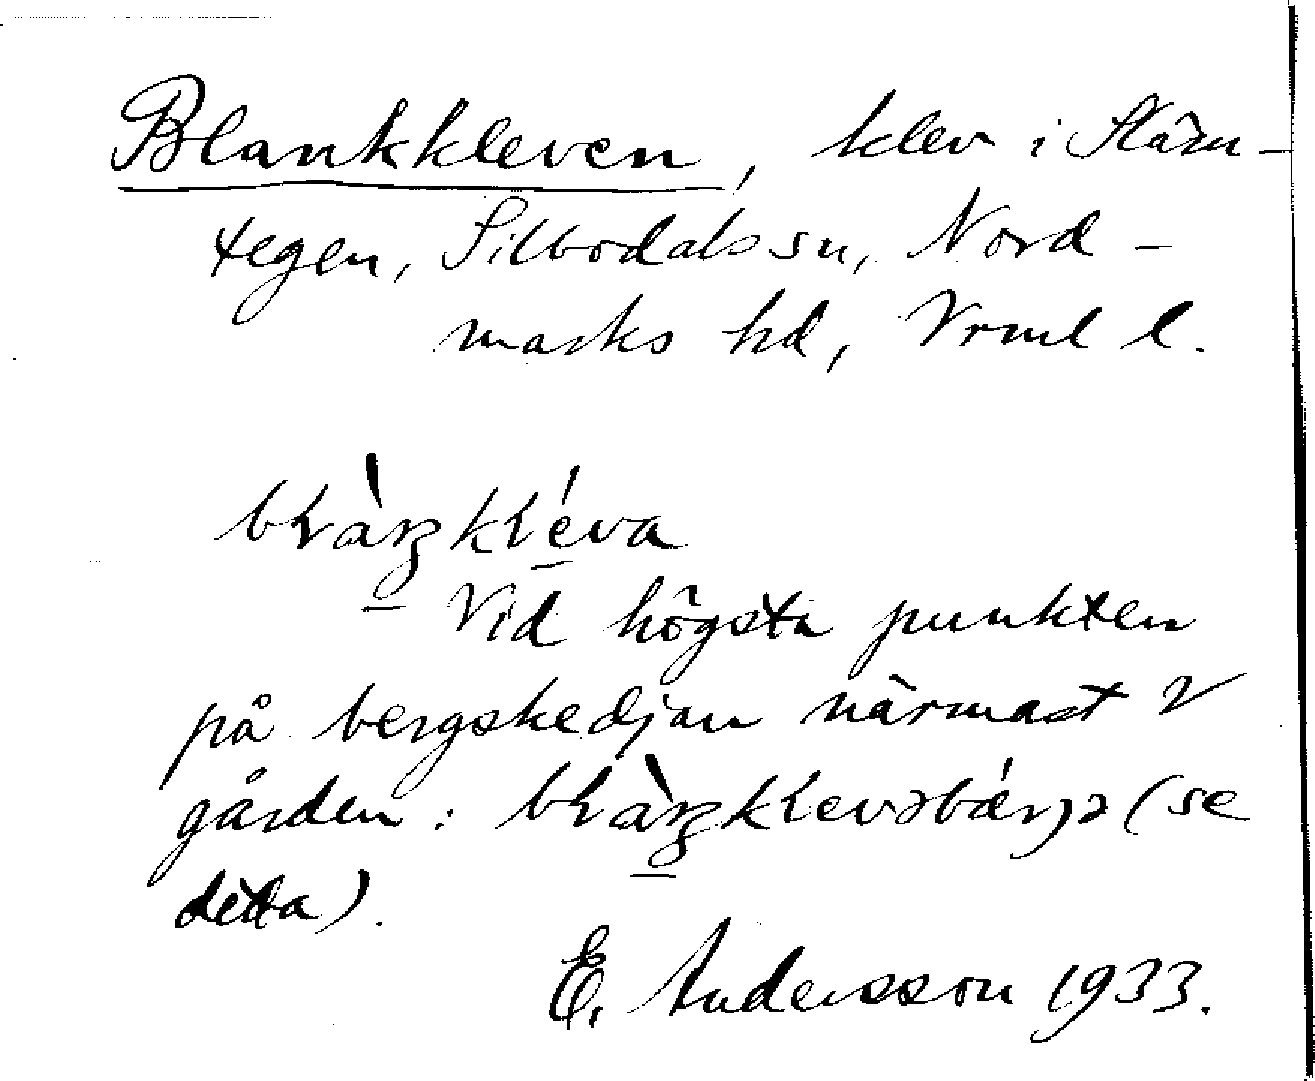 Blankkleven, klev i Slärn-
tegen, Silbodals sn, Nord-
marks hd, Vrml l.
Vid högsta punkten
på bergskedjan närmast V
gården: (se
detta).
E. Andersson 1933.